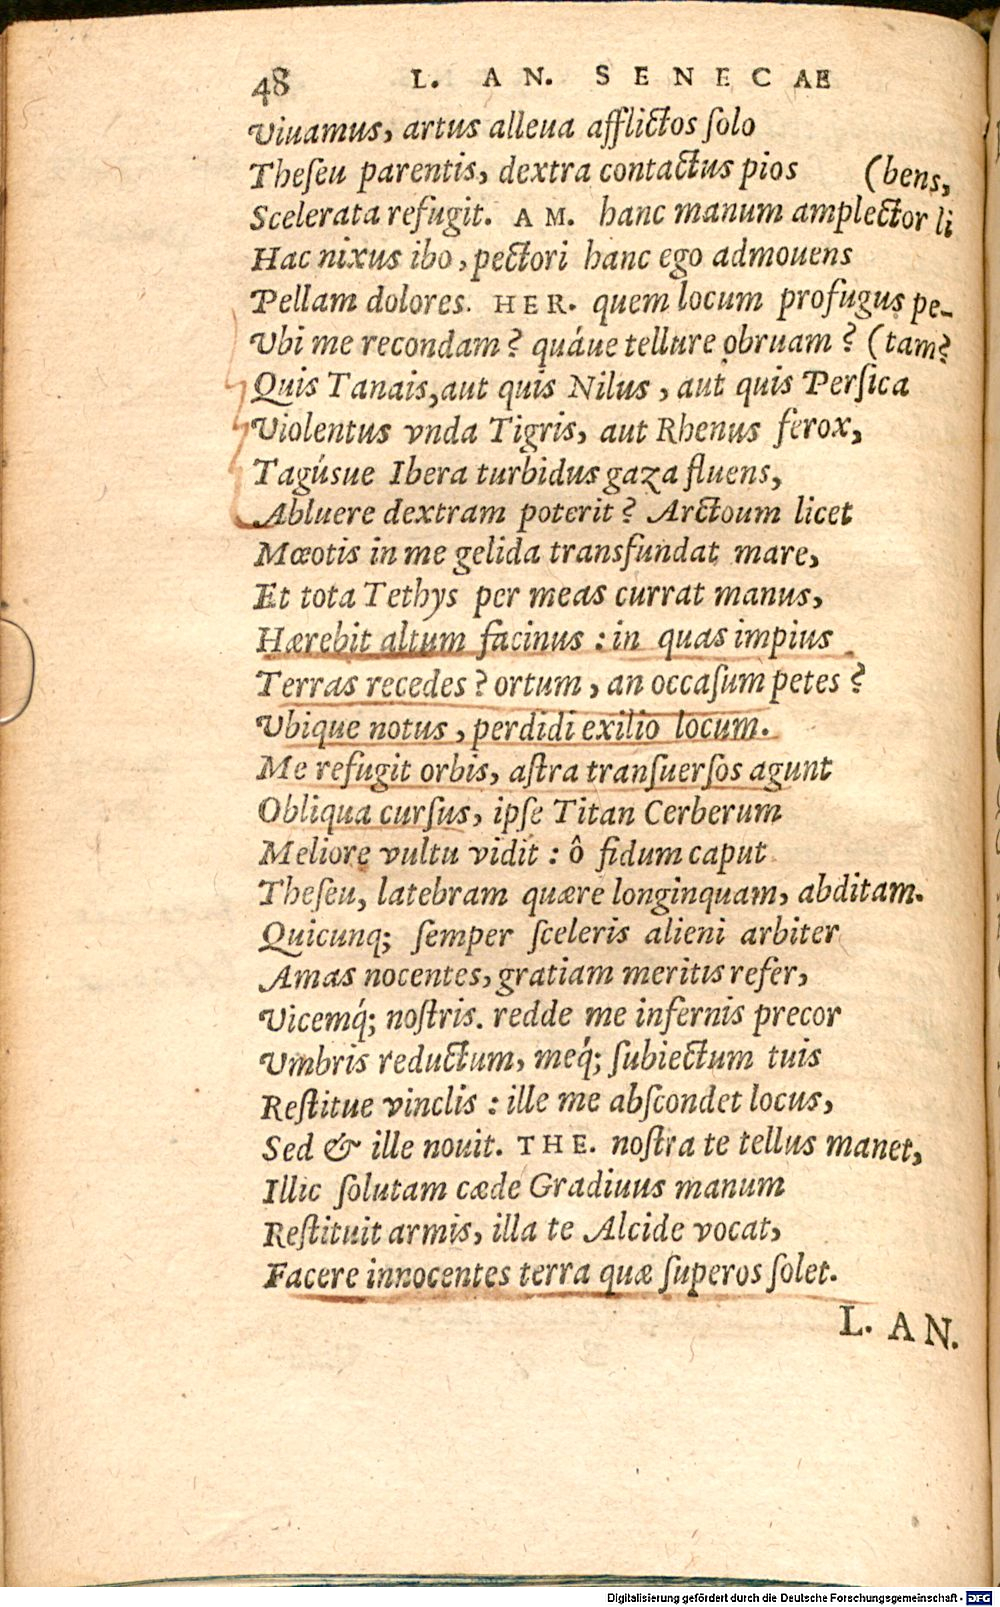 48 L. AN. SENECAE
Viuamus, artus alleua afflictos ſolo
Theſeu parentis, dextra contactus pios (bens,
Scelerata refugit. AM. hanc manum amplector li
Hac nixus ibo, pectori hanc ego admouens
Pellam dolores. HER. quem locum profugus pe-
Vbi me recondam? quáue tellure obruam? (tam?
Quis Tanais, aut quis Nilus, aut quis Perſica
Violentus vnda Tigris, aut Rhenus ferox,
Tagúsue Ibera turbidus gaza fluens,
Abluere dextram poterit? Arctoum licet
Mœotis in me gelida transfundat mare,
Et tota Tethys per meas currat manus,
Hærebit altum facinus: in quas impius
Terras recedes? ortum, an occaſum petes?
Vbique notus, perdidi exilio locum.
Me refugit orbis, aſtra tranſuerſos agunt
Obliqua curſus, ipſe Titan Cerberum
Meliore vultu vidit: ô fidum caput
Theſeu, latebram quære longinquam, abditam.
Quicunq; ſemper ſceleris alieni arbiter
Amas nocentes, gratiam meritis refer,
Vicemq́; noſtris. redde me infernis precor
Vmbris reductum, meq́; ſubiectum tuis
Reſtitue vinclis: ille me abſcondet locus,
Sed & ille nouit. THE. noſtra te tellus manet,
Illic ſolutam cæde Gradiuus manum
Reſtituit armis, illa te Alcide vocat,
Facere innocentes terra quæ ſuperos ſolet.
L. AN.
Digitalisierung gefördert durch die Deutsche Forschungsgemeinschaft - DFG